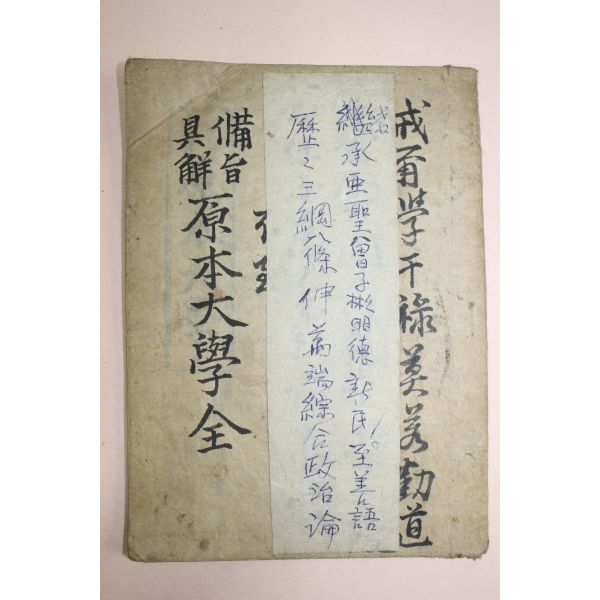 戒爾學干祿莫若勤道
繼承亜聖曾子彬明德新民至善語
歷々三綱八條伸萬端綜合政治論
備旨
具解
原本大學全